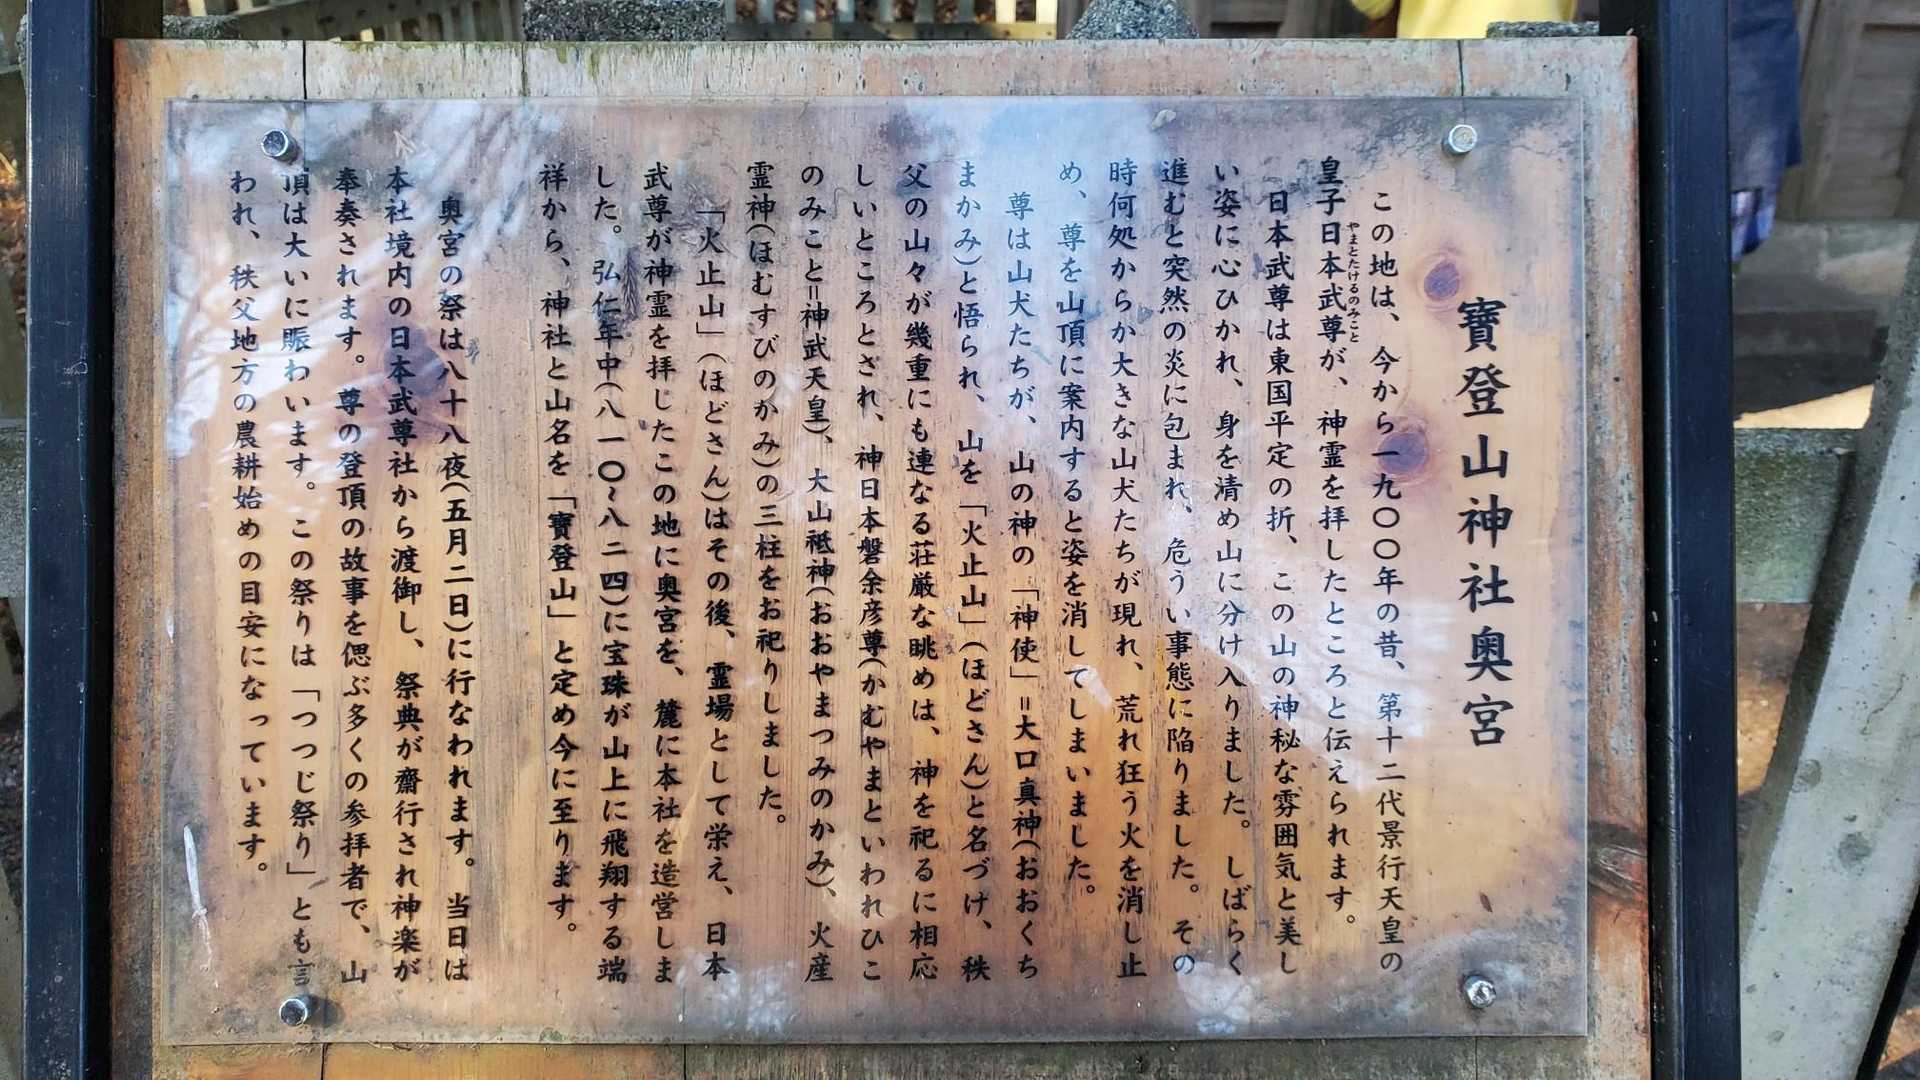 寶登山神社奥宮
この地は、今から一九〇〇年の昔、第十二代景行天皇の
皇子日本武尊が、神霊を拝したところと伝えられます。
やまとたけるのみこと
日本武尊は東国平定の折、この山の神秘な雰囲気と美し
い姿に心ひかれ、身を清め山に分け入りました。しばらく
進むと突然の炎に包まれ、危うい事態に陥りました。その
時何処からか大きな山犬たちが現れ、荒れ狂う火を消し止
め、尊を山頂に案内すると姿を消してしまいました。
尊は山犬たちが、山の神の「神使」＝大口真神(おおくち
まかみ)と悟られ、山を「火止山」(ほどさん)と名づけ、秩
父の山々が幾重にも連なる荘厳な眺めは、神を祀るに相応
しいところとされ、神日本磐余彦尊(かむやまといわれひこ
のみこと＝神武天皇)、大山祗神(おおやまつみのかみ)、火産
霊神(ほむすびのかみ)の三柱をお祀りしました。
「火止山」(ほどさん)はその後、霊場として栄え、日本
武尊が神霊を拝したこの地に奥宮を、麓に本社を造営しま
した。弘仁年中(八一〇～八二四)に宝珠が山上に飛翔する端
祥から、神社と山名を「寶登山」と定め今に至ります。
奥宮の祭は八十八夜(五月二日)に行なわれます。当日は
本社境内の日本武尊社から渡御し、祭典が齋行され神楽が
奉奏されます。尊の登頂の故事を偲ぶ多くの参拝者で、山
頂は大いに賑わいます。この祭りは「つつじ祭り」とも言
われ、秩父地方の農耕始めの目安になっています。